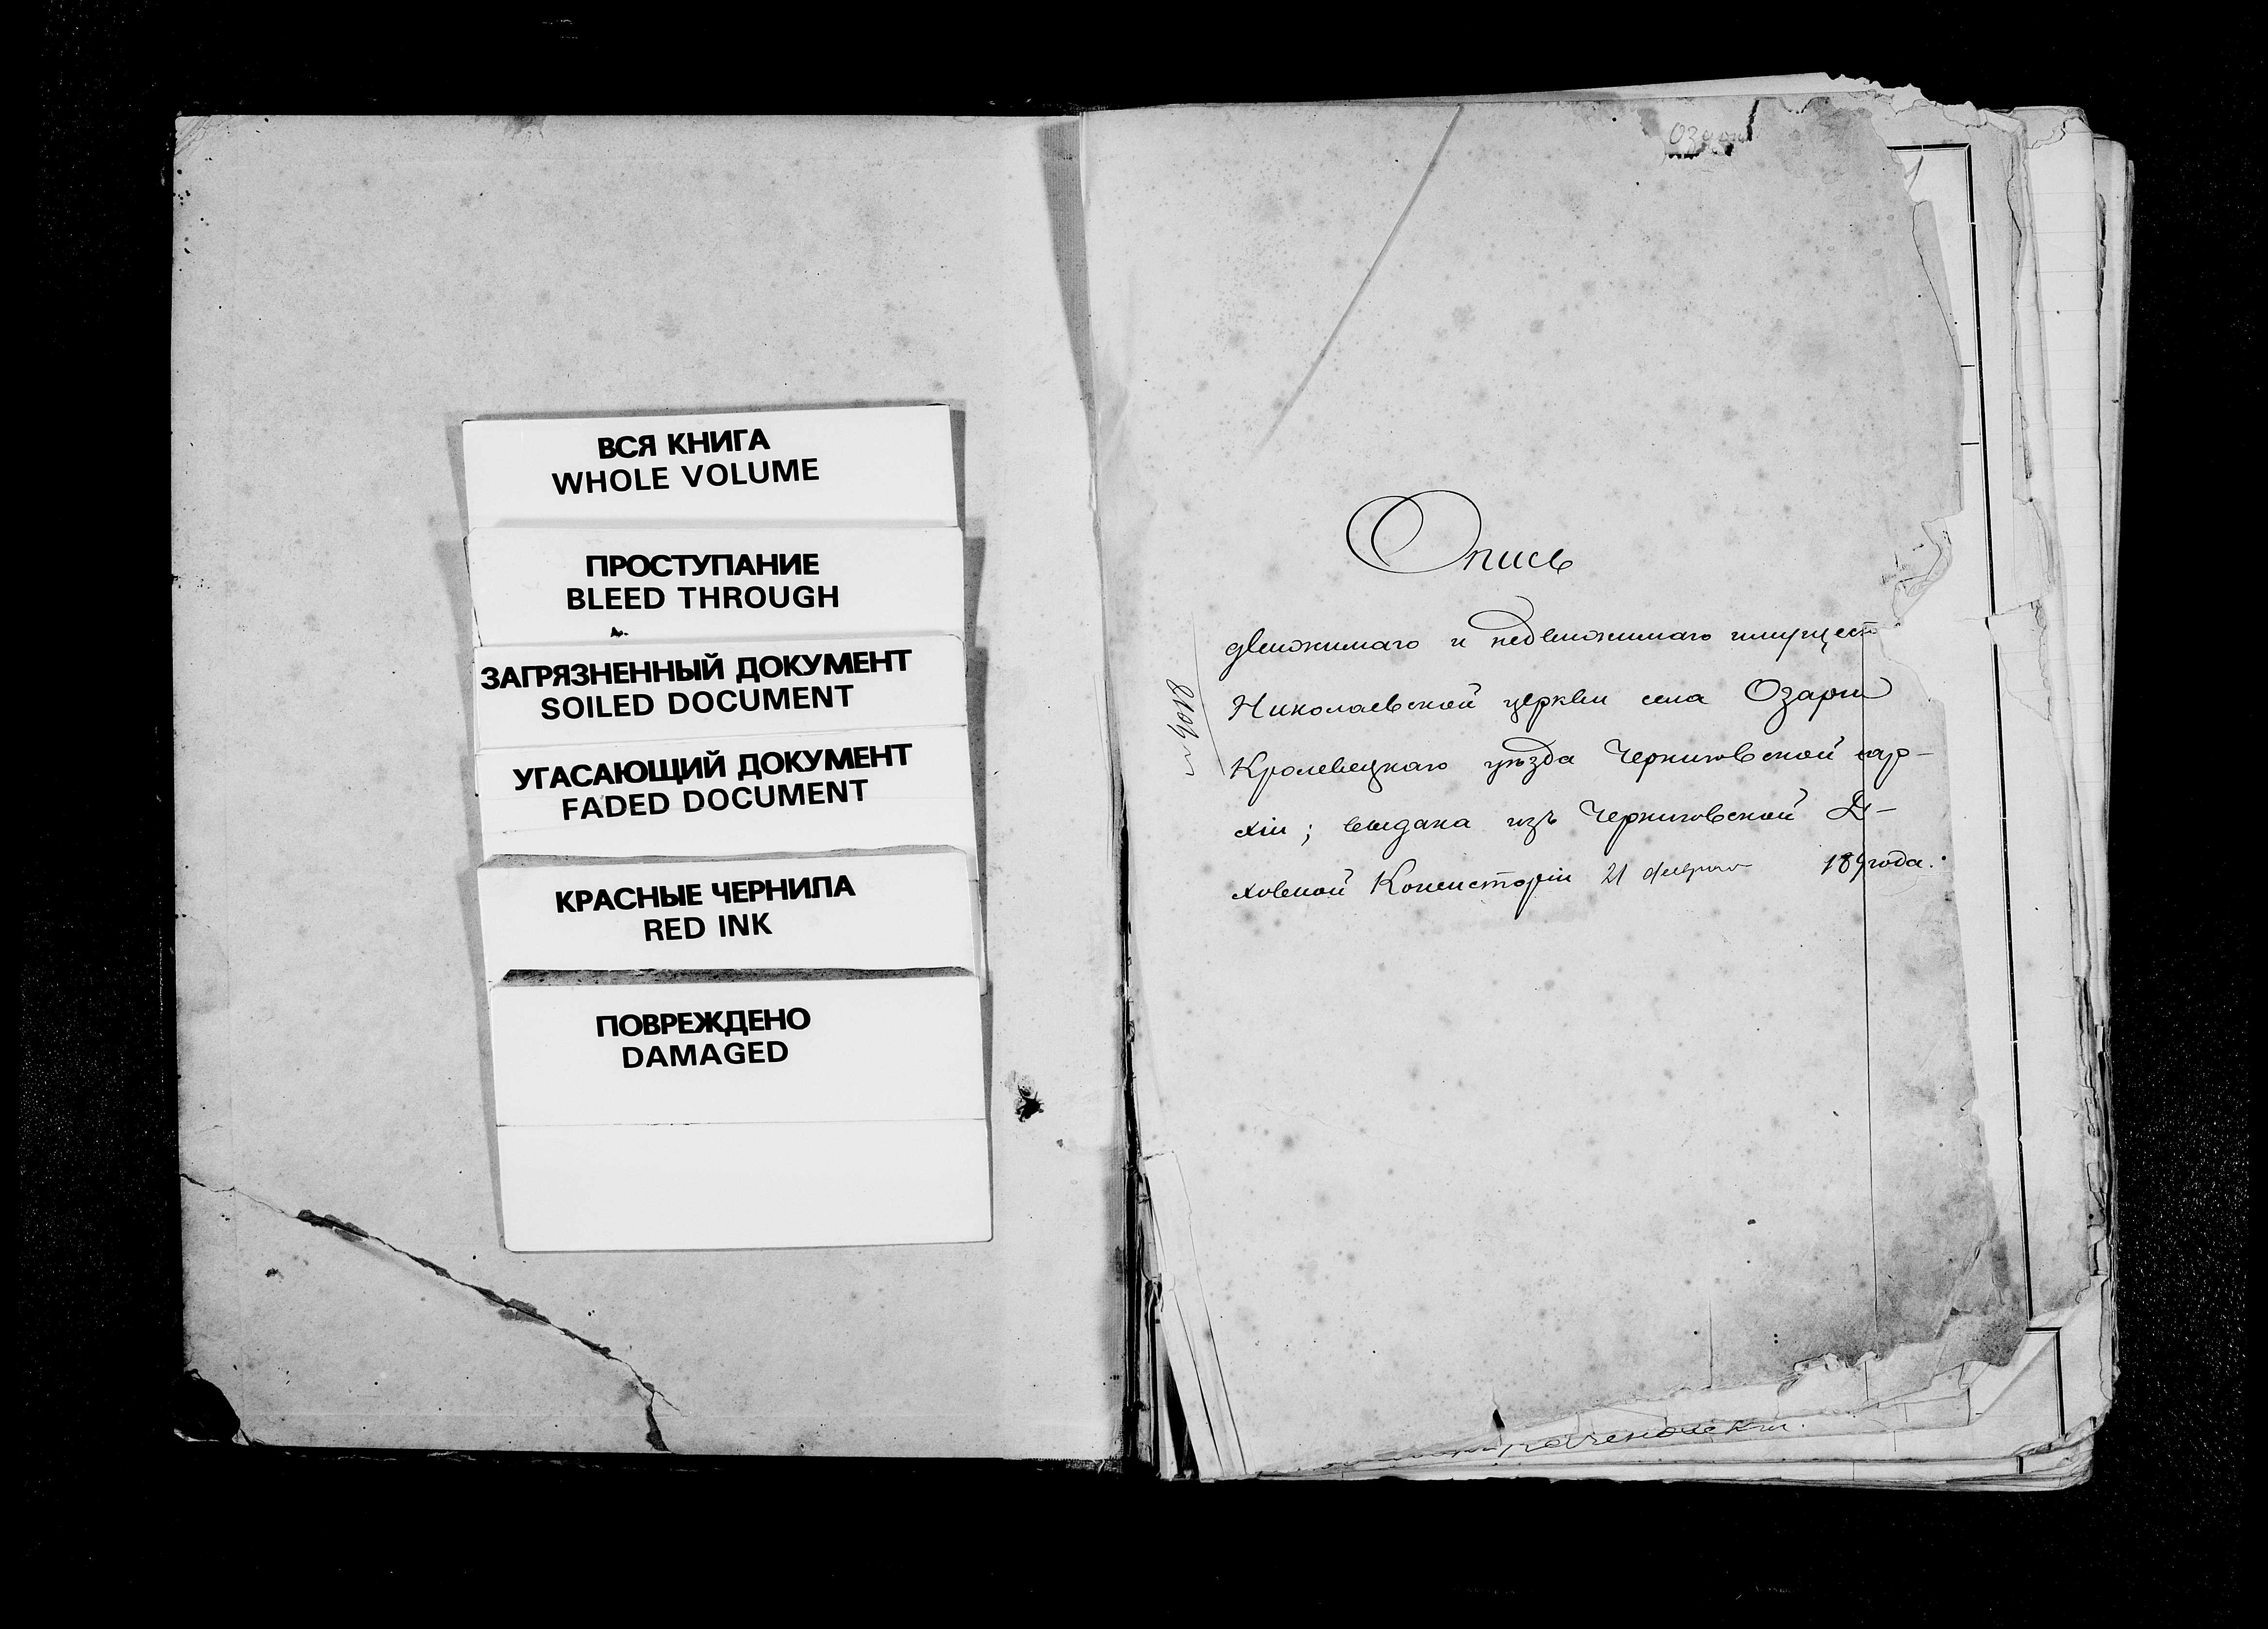 ВСЯ КНИГА
WHOLE VOLUME
ПРОСТУПАНИЕ
BLEED THROUGH
ЗАГРЯЗНЕННЫЙ ДОКУМЕНТ
SOILED DOCUMENT
УГАСАЮЩИЙ ДОКУМЕНТ
FADED DOCUMENT
КРАСНЫЕ ЧЕРНИЛА
RED INK
ПОВРЕЖДЕНО
DAMAGED
Опись
движимаго и недвижимаго имущест
Николаевской церкви села Озари
Кролевецкаго уѣзда Черниговской епар-
хіи; выдана изъ Черниговской Д-
ховной Консисторіи 21 февраля 189 года.